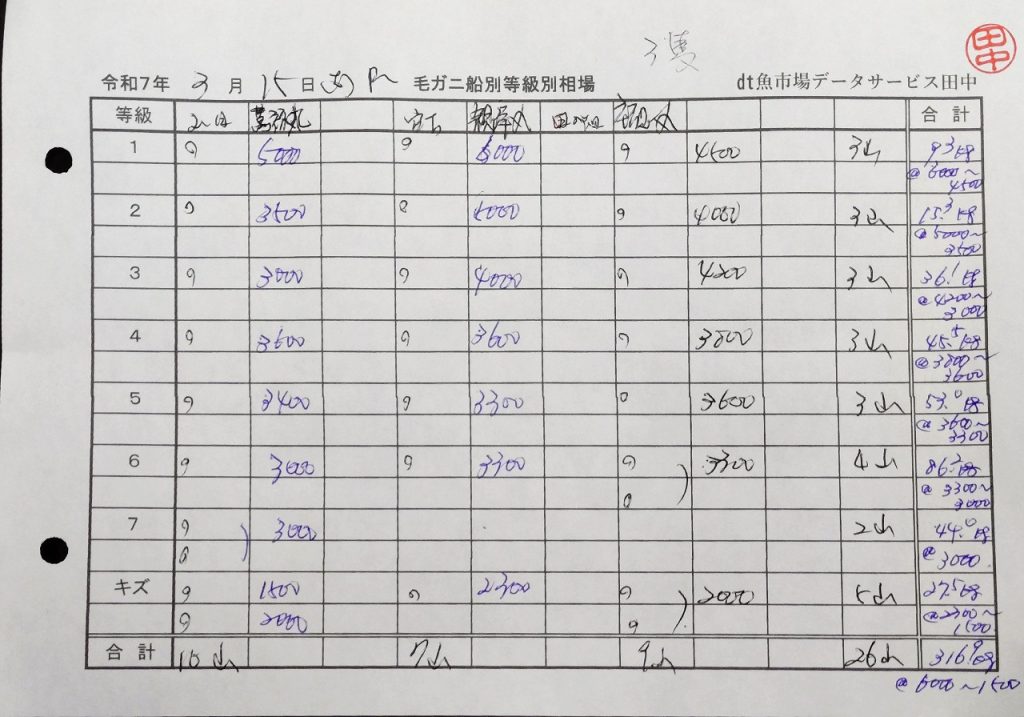 3隻
田中
令和7年 3月15日(土) 毛ガニ船別等級別相場 dt魚市場データサービス田中
等級 合計
1 5000 6000 4500 3山 9.3kg
@6000～4500
2 3500 5000 4000 3山 15.3kg
@5000～3500
3 3000 4000 4200 3山 36.1kg
@4200～3000
4 3600 3600 3800 3山 45.5kg
@3800～3600
5 3400 3300 3600 3山 53.0kg
@3600～3300
6 3000 3300 3300 4山 86.2kg
@3300～3000
7 3000 2山 44.0kg
@3000
キズ 1500 2300 2000 5山 27.5kg
2000 @2300～1500
合計 10山 7山 9山 26山 316.9kg
@6000～1500